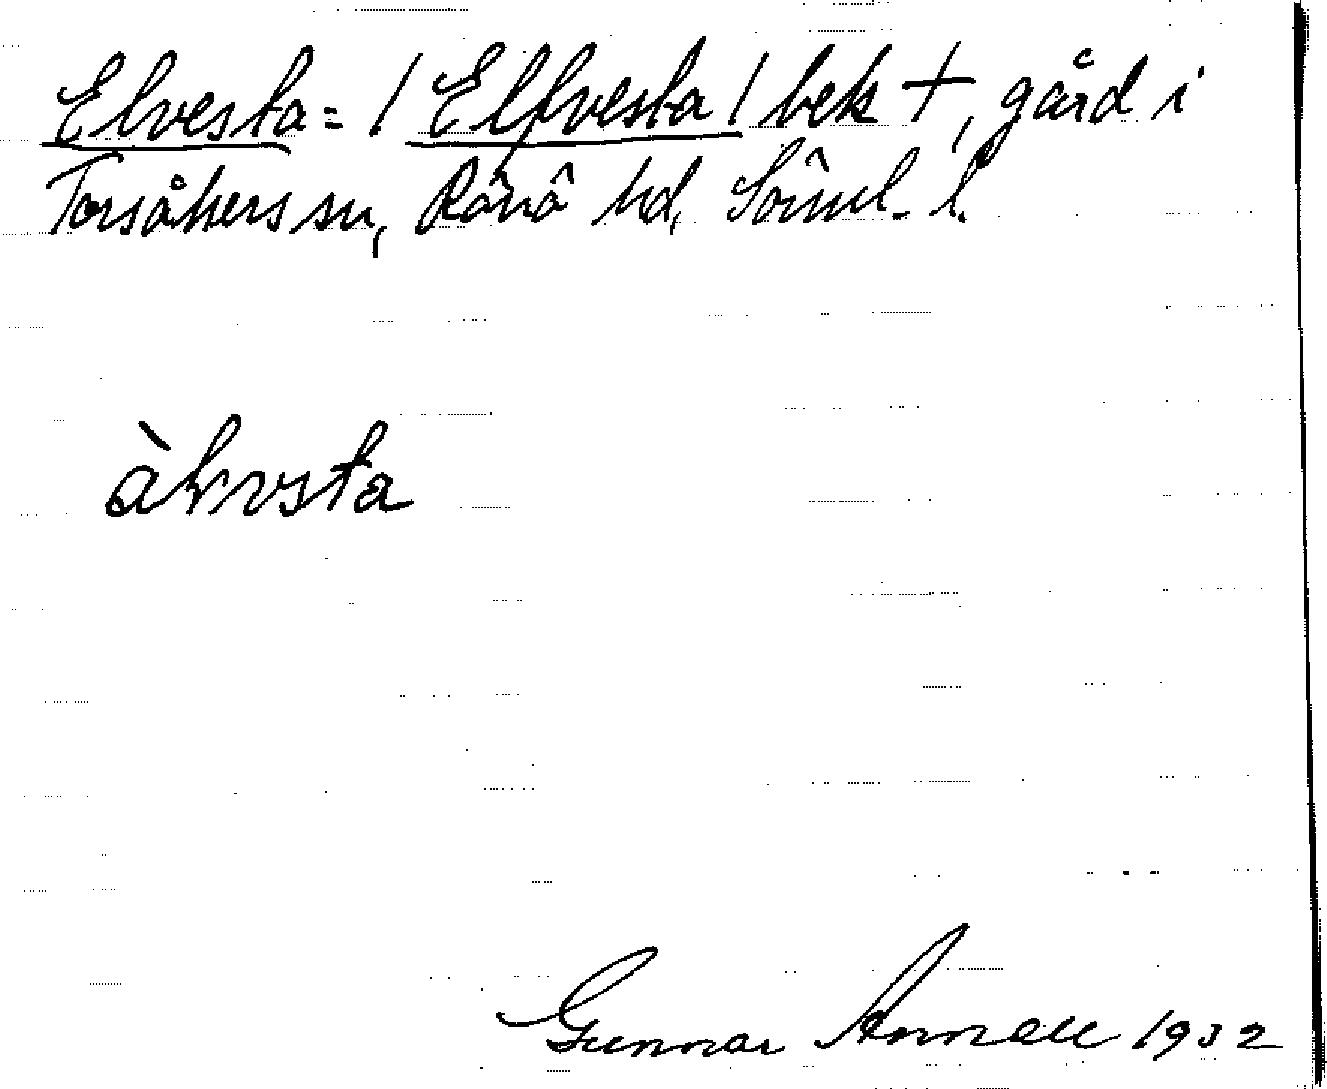 Elvesta = / Elfvesta / bek +, gård i
Torsåkers sn, Rönö hd, Söml. l.
àlvəsta
Gunnar Arnell 1932